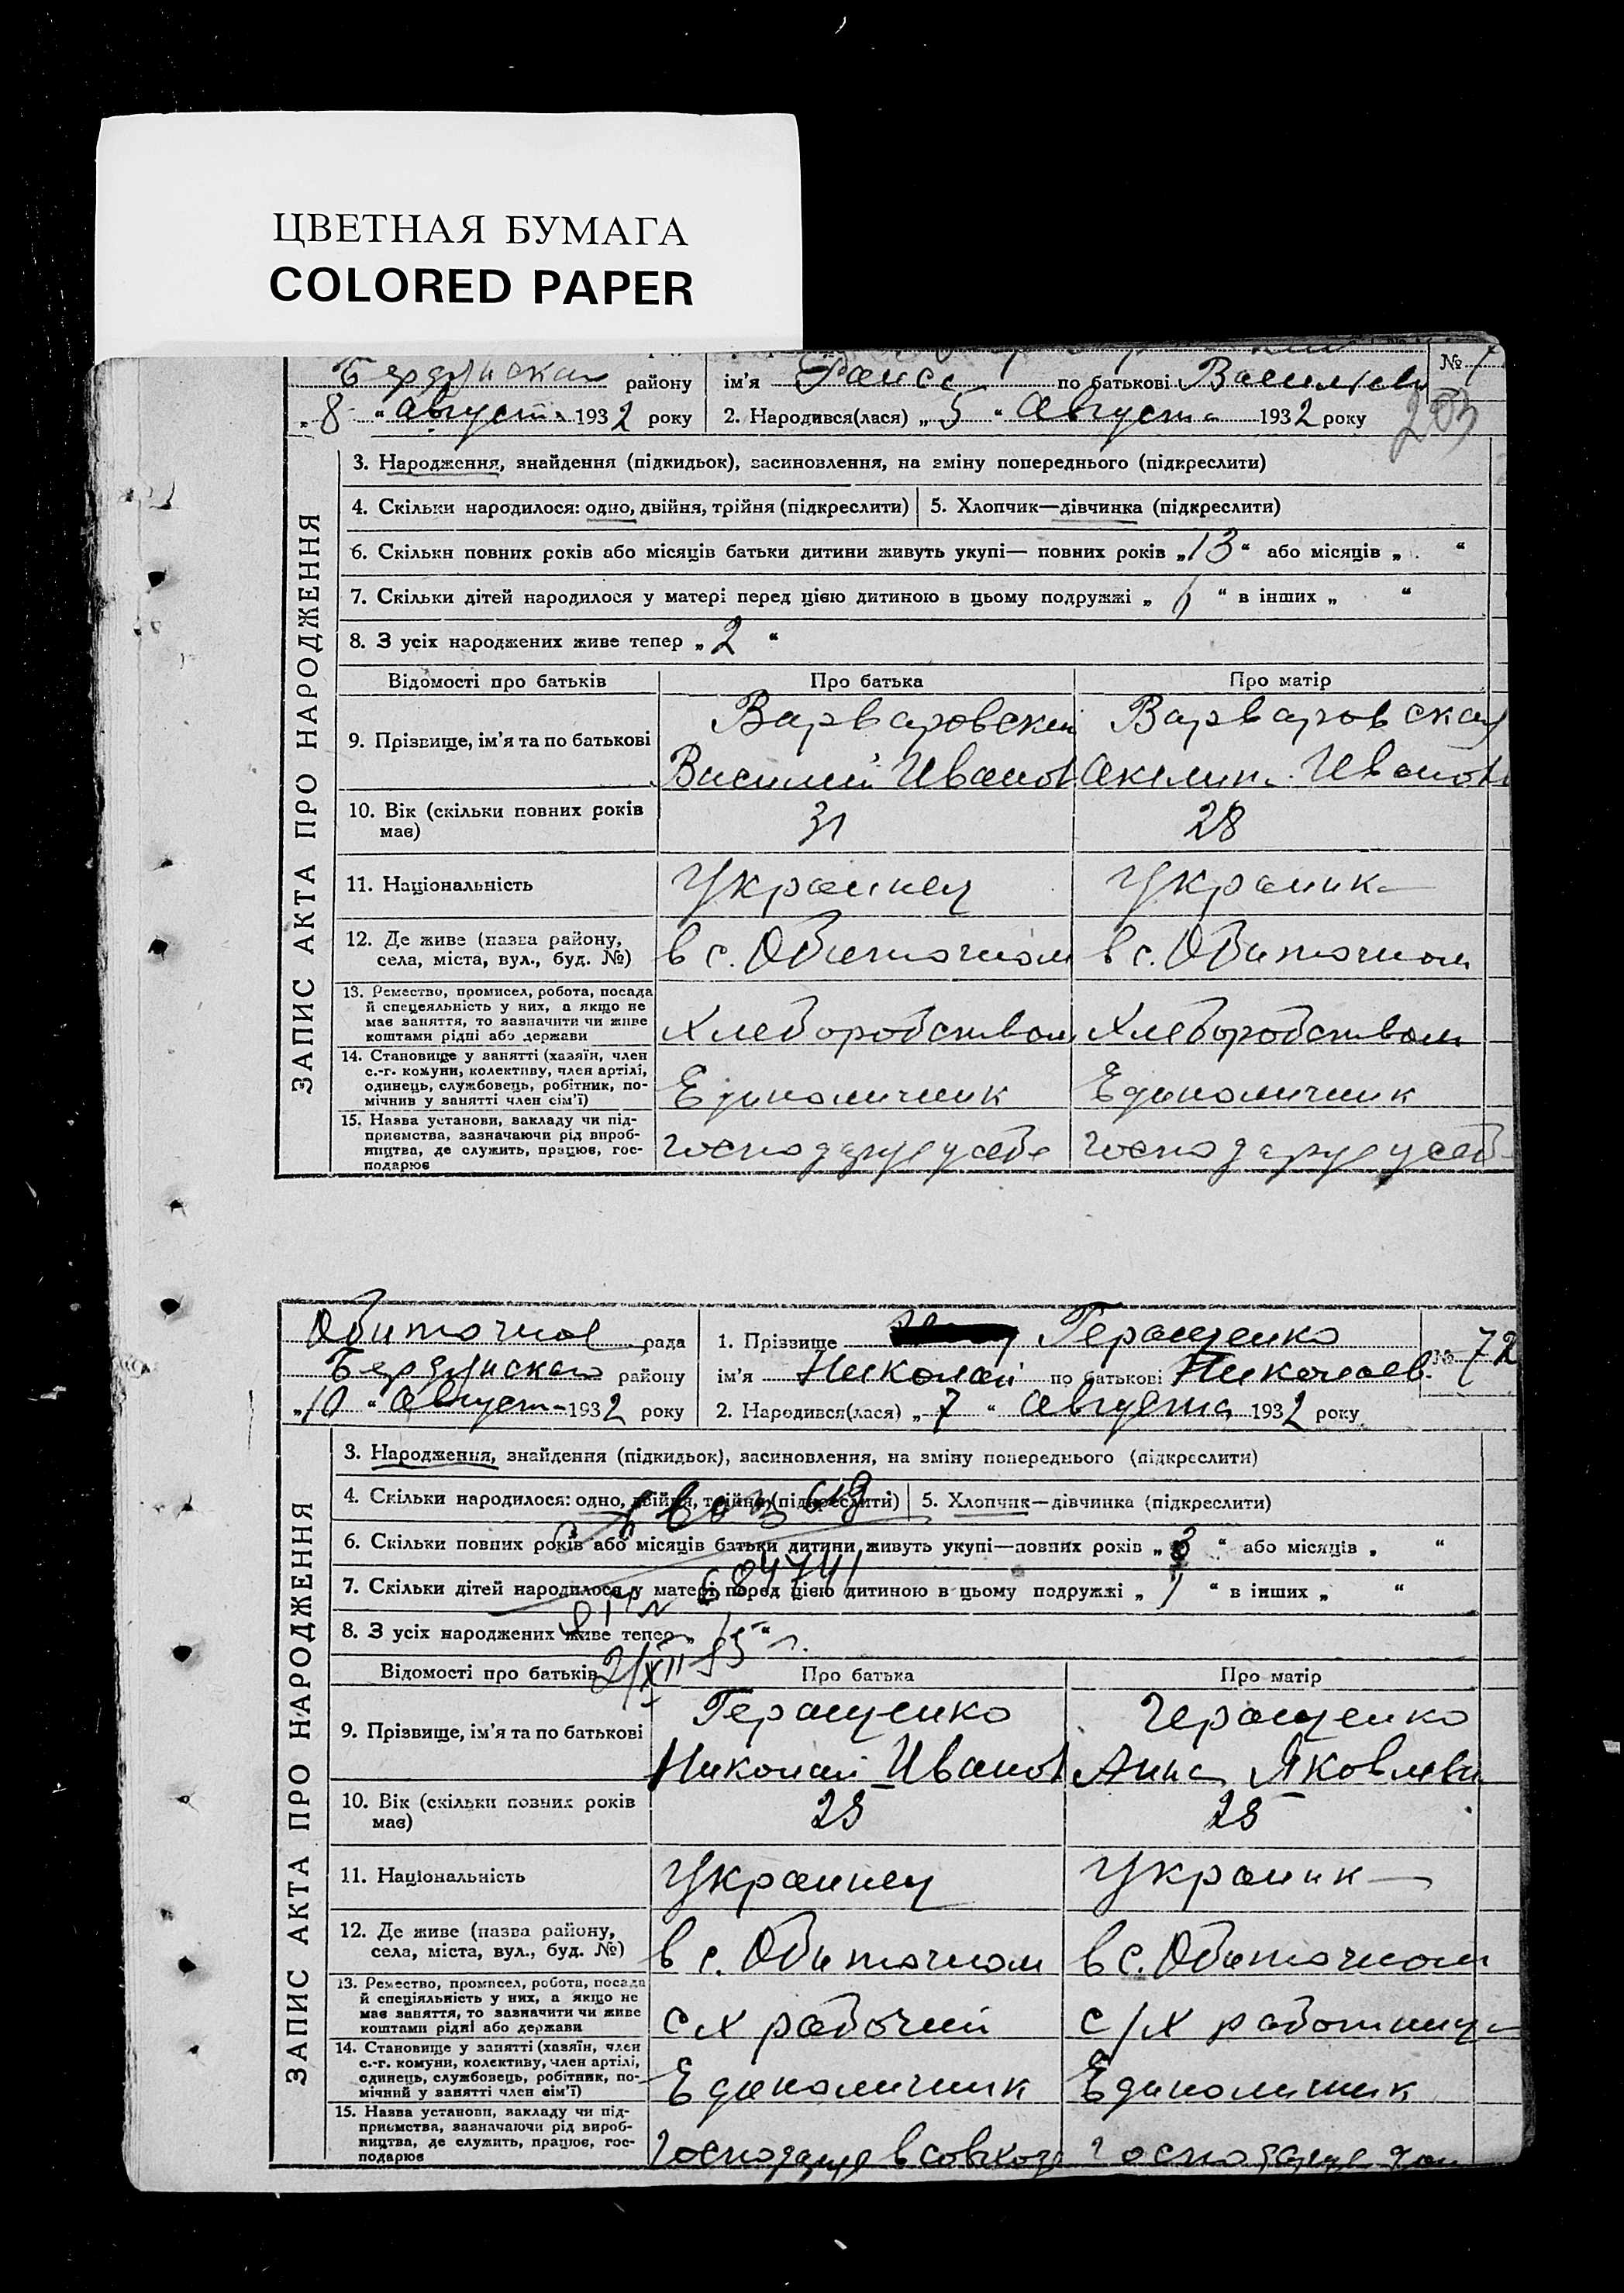 ЦВЕТНАЯ БУМАГА
COLORED PAPER
Бердянского району
ім'я Раиса по батькові Васильев
№ 7
„8“ Августа 1932 року
2. Народився(лася) „5“ Августа 1932 року
203
ЗАПИС АКТА ПРО НАРОДЖЕННЯ
3. Народження, знайдення (підкидьок), засиновлення, на зміну попереднього (підкреслити)
4. Скільки народилося: одно, двійня, трійня (підкреслити)
5. Хлопчик—дівчинка (підкреслити)
6. Скільки повних років або місяців батьки дитини живуть укупі— повних років „13“ або місяців „ “
7. Скільки дітей народилося у матері перед цією дитиною в цьому подружжі „1“ в інших „ “
8. З усіх народжених живе тепер „2“
Відомості про батьків
Про батька
Про матір
9. Прізвище, ім'я та по батькові
Варваровский
Василий Иванов
Варваровская
Акилина Иванов
10. Вік (скільки повних років
має)
31
28
11. Національність
Украинец
Украинка
12. Де живе (назва району,
села, міста, вул., буд. №)
в с. Обиточном
в с. Обиточном
13. Ремество, промисел, робота, посада
й спецеяльність у них, а якщо не
має заняття, то зазначити чи живе
коштами рідні або держави
Хлеборобством
Хлеборобством
14. Становище у занятті (хазяїн, член
с.-г. комуни, колективу, член артілі,
одинець, службовець, робітник, по-
мічнив у занятті член сім'ї)
Единоличник
Единоличник
15. Назва установи, закладу чи під-
приємства, зазначаючи рід вироб-
ництва, де служить, працює, гос-
подарює
господарує у себе
господарує у себе
Обиточное рада
1. Прізвище Геращенко
№ 72
Бердянского району
ім'я Николай по батькові Николаев.
„10“ Августа 1932 року
2. Народився(лася) „7“ Августа 1932 року
ЗАПИС АКТА ПРО НАРОДЖЕННЯ
3. Народження, знайдення (підкидьок), засиновлення, на зміну попереднього (підкреслити)
4. Скільки народилося: одно, двійня, трійня (підкреслити)
5. Хлопчик—дівчинка (підкреслити)
6. Скільки повних років або місяців батьки дитини живуть укупі—повних років „3“ або місяців „ “
7. Скільки дітей народилося у матері перед цією дитиною в цьому подружжі „1“ в інших „ “
684741
8. З усіх народжених живе тепер „ “
2/XII 55 г.
Відомості про батьків
Про батька
Про матір
9. Прізвище, ім'я та по батькові
Геращенко
Николай Иванов
Геращенко
Анна Яковлевн
10. Вік (скільки повних років
має)
25
25
11. Національність
Украинец
Украинк
12. Де живе (назва району,
села, міста, вул., буд. №)
в с. Обиточном
в с. Обиточном
13. Ремество, промисел, робота, посада
й спеціяльність у них, а якщо не
має заняття, то зазначити чи живе
коштами рідні або держави
с х рабочий
с/х работница
14. Становище у занятті (хазяїн, член
с.-г. комуни, колективу, член артілі,
одинець, службовець, робітник, по-
мічний у занятті член сім'ї)
Единоличник
Единоличник
15. Назва установи, закладу чи під-
приємства, зазначаючи рід вироб-
ництва, де служить, працює, гос-
подарює
господарує в совхозе
господарує дом